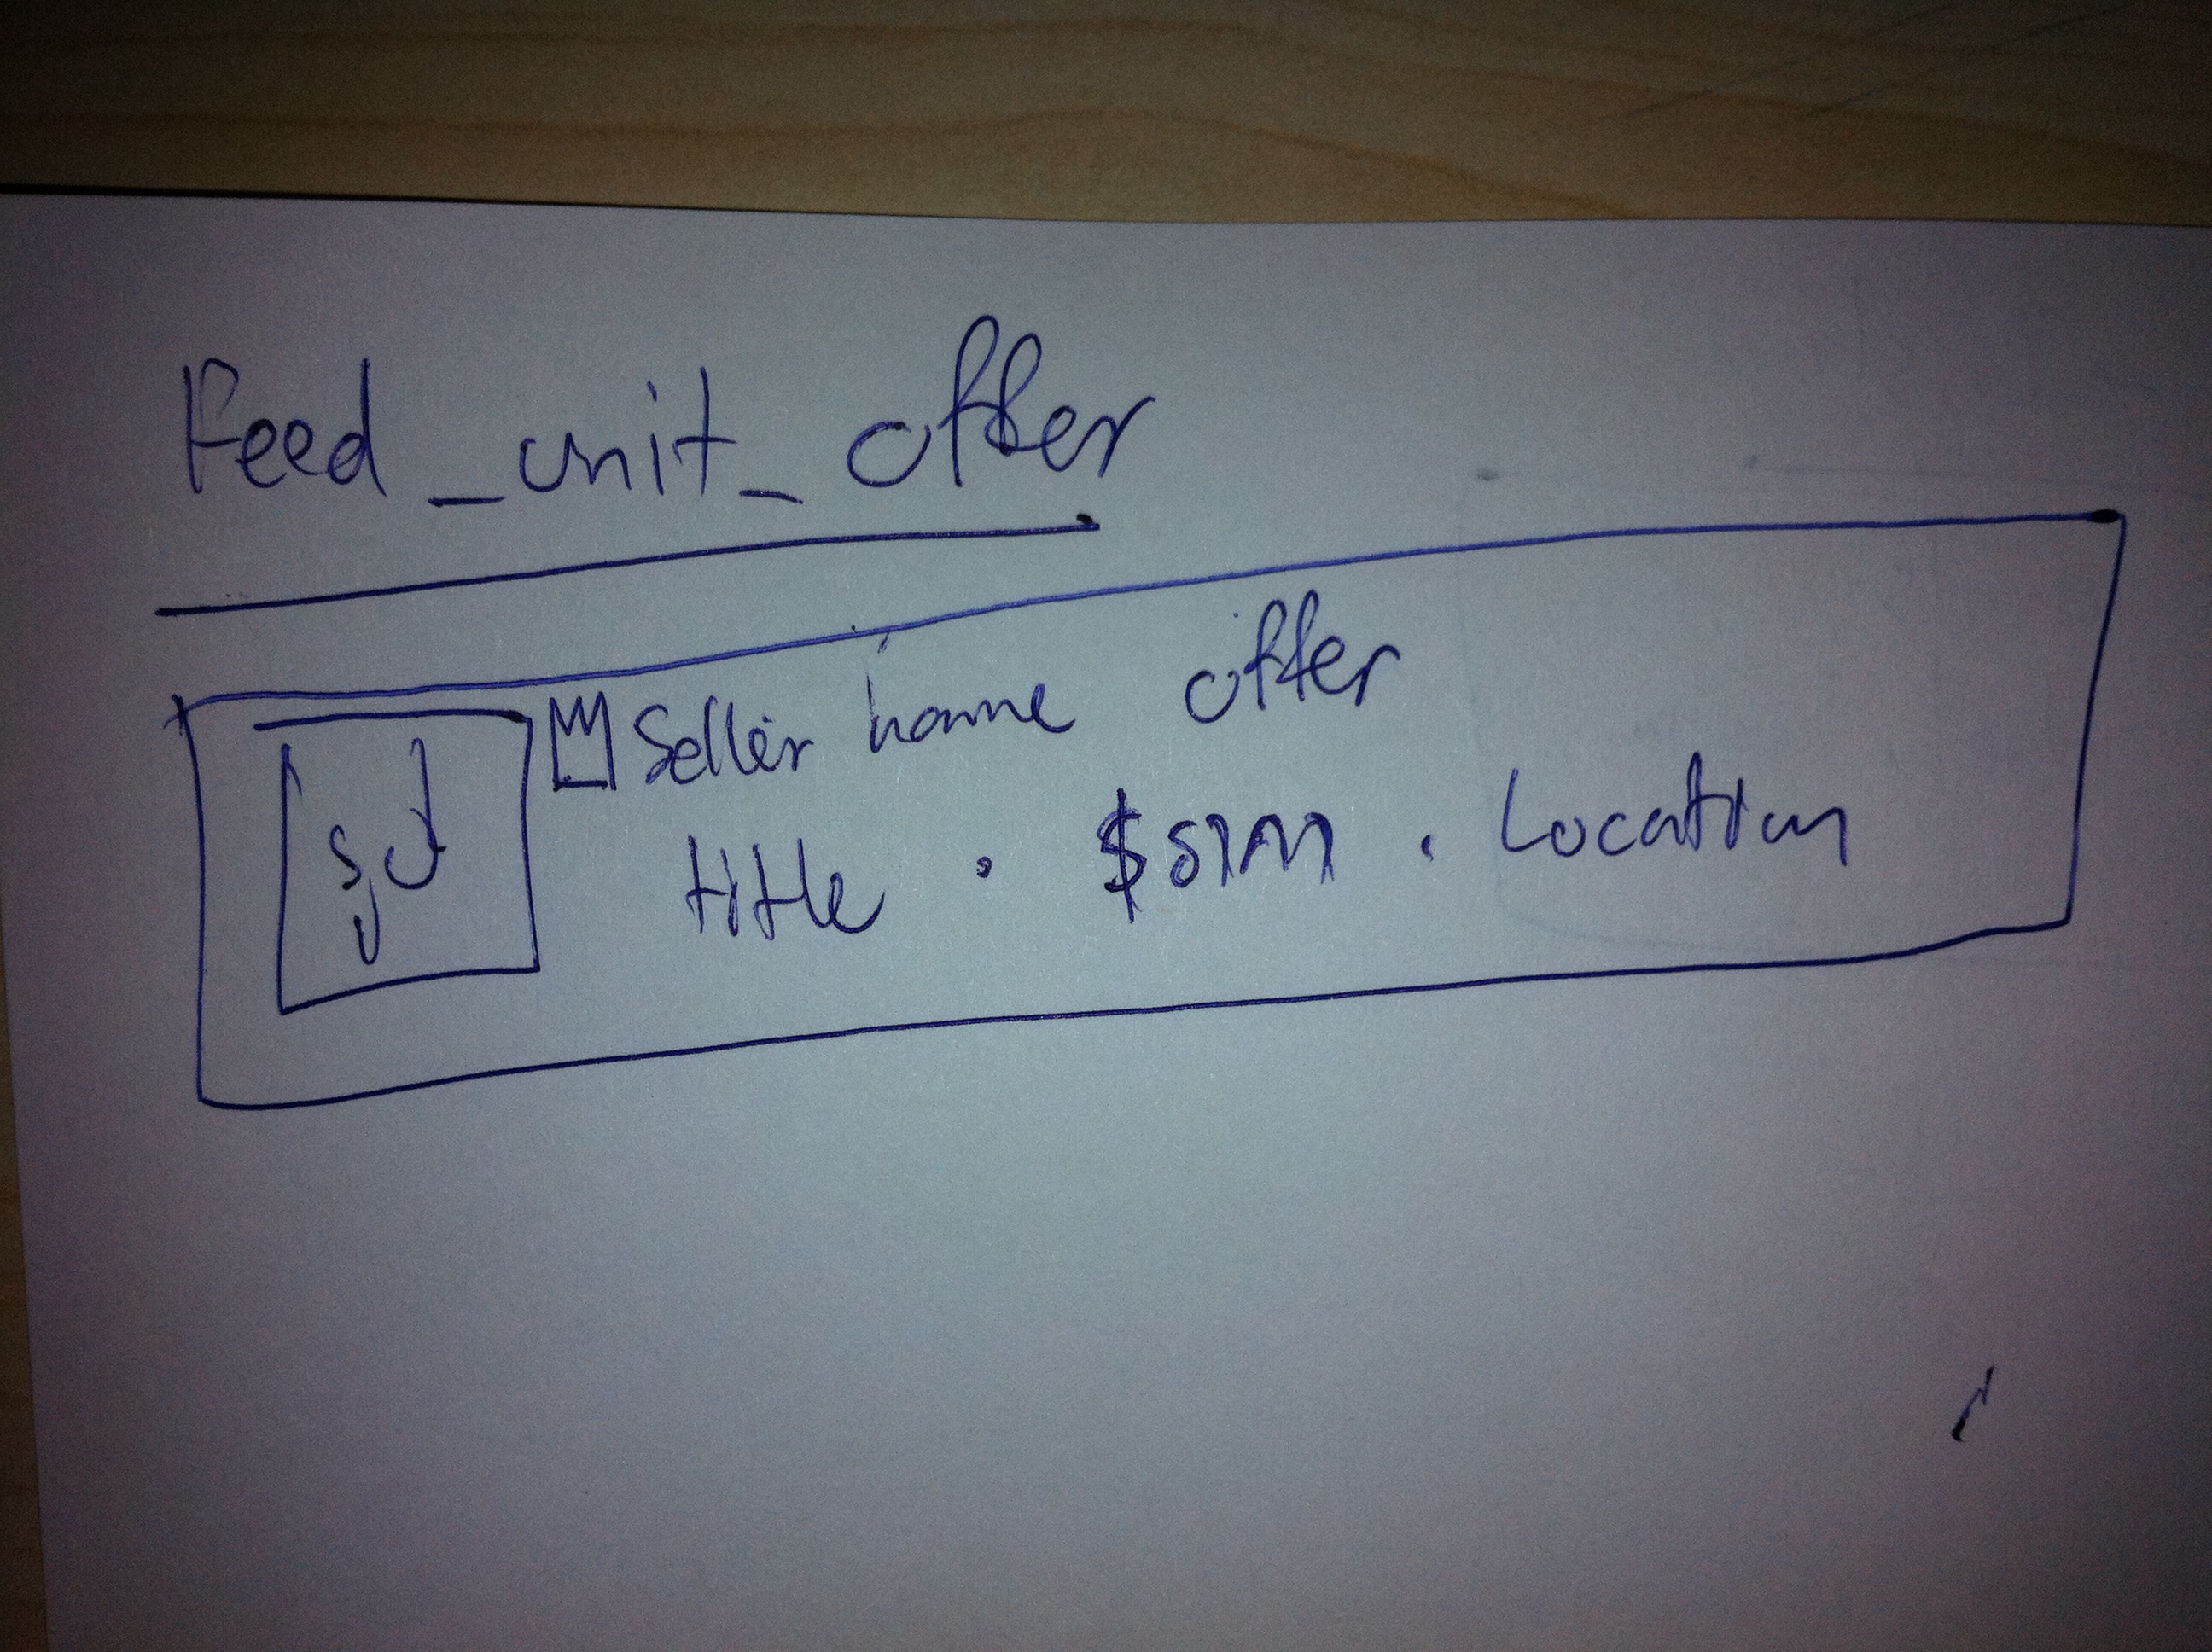 Feed_unit_offer
Seller name offer
title . $sum . Location